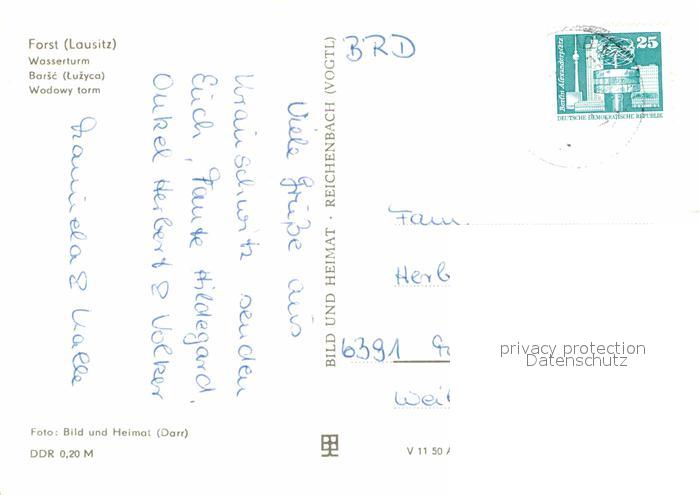 Forst (Lausitz)
Wasserturm
Baršć (Łužyca)
Wodowy torm
Viele Grüße aus
Krauschwitz senden
Euch, Tante Hildegard,
Onkel Herbert & Volker
& Kalle
Foto: Bild und Heimat (Darr)
DDR 0,20 M
BILD UND HEIMAT · REICHENBACH (VOGTL)
V 11 50
BRD
25
Berlin, Alexanderplatz
DEUTSCHE DEMOKRATISCHE REPUBLIK
Fam.
Herb
6391
Wei
privacy protection
Datenschutz